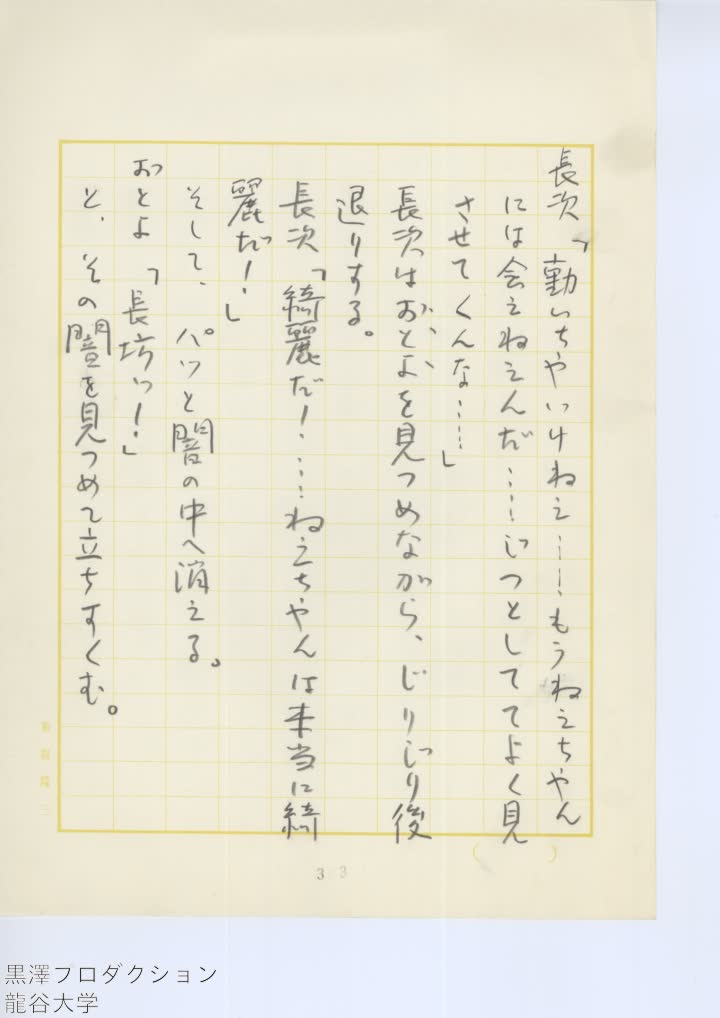 長次「動いちやいけねえ……もうねえちやん
には会えねえんだ……じつとしててよく見
させてくんな……」
長次はおとよを見つめながら、じりじり後
退りする。
長次「綺麗だ！……ねえちやんは本当に綺
麗だ！」
そして、パツと闇の中へ消える。
おとよ「長坊ッ！」
と、その闇を見つめて立ちすくむ。
33
黒澤プロダクション
龍谷大学